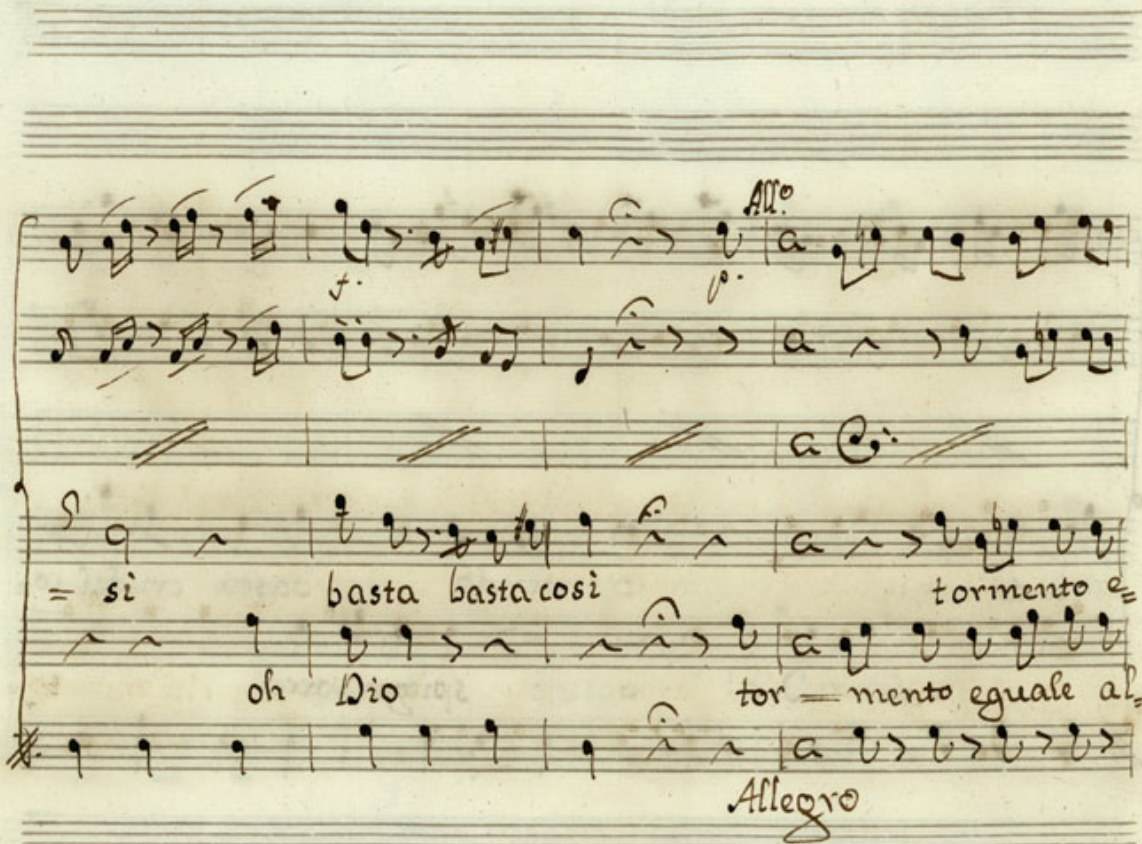 All.o
f.
p.
= si basta basta così tormento e=
f.
oh Dio tor = mento eguale al=
Allegro